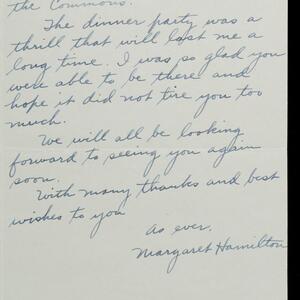 the Commons.
The dinner party was a
thrill that will last me a
long time. I was so glad you
were able to be there and
hope it did not tire you too
much.
We will all be looking
forward to seeing you again
soon.
With many thanks and best
wishes to you
as ever,
Margaret Hamilton